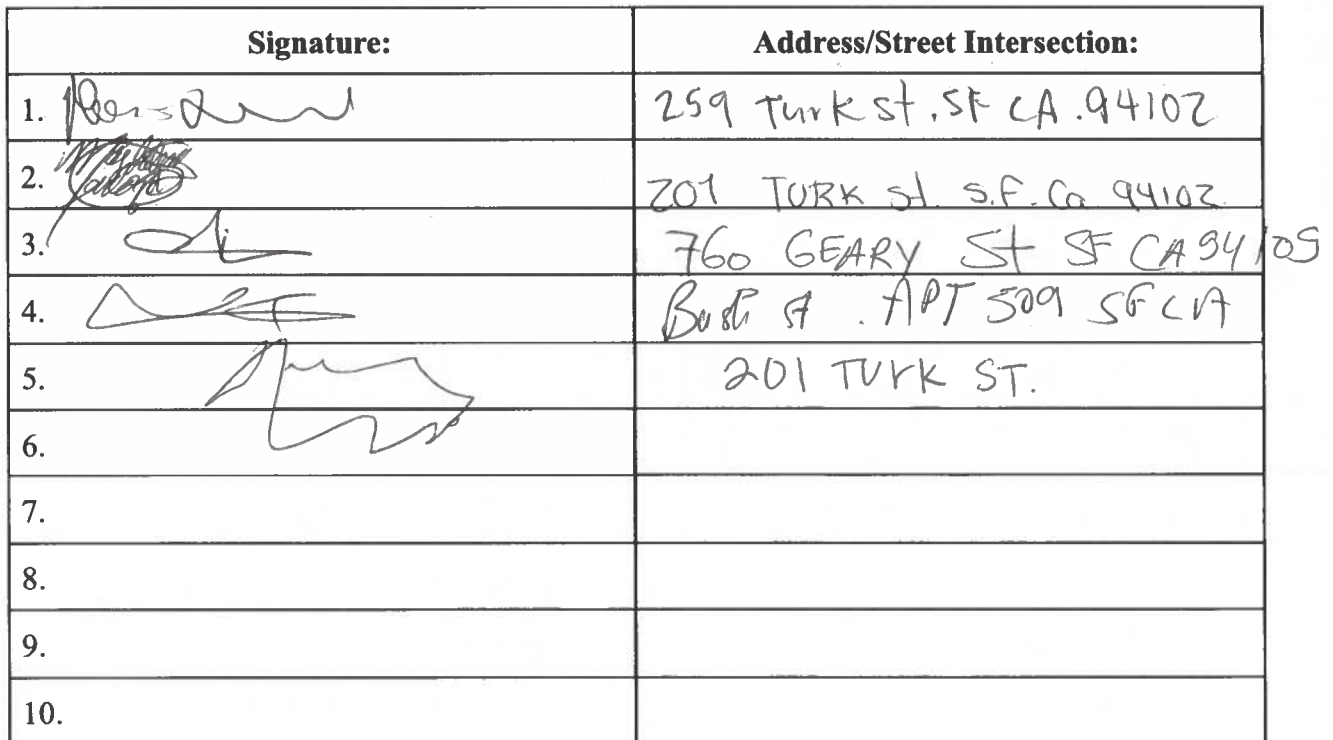 Signature: Address/Street Intersection:
1. 259 Turk st. SF CA. 94102
2. 201 TURK st. S.F. Ca 94102
3. 760 GEARY St SF CA 94109
4. Bush st. APT 509 SF CA
5. 201 TURK ST.
6.
7.
8.
9.
10.